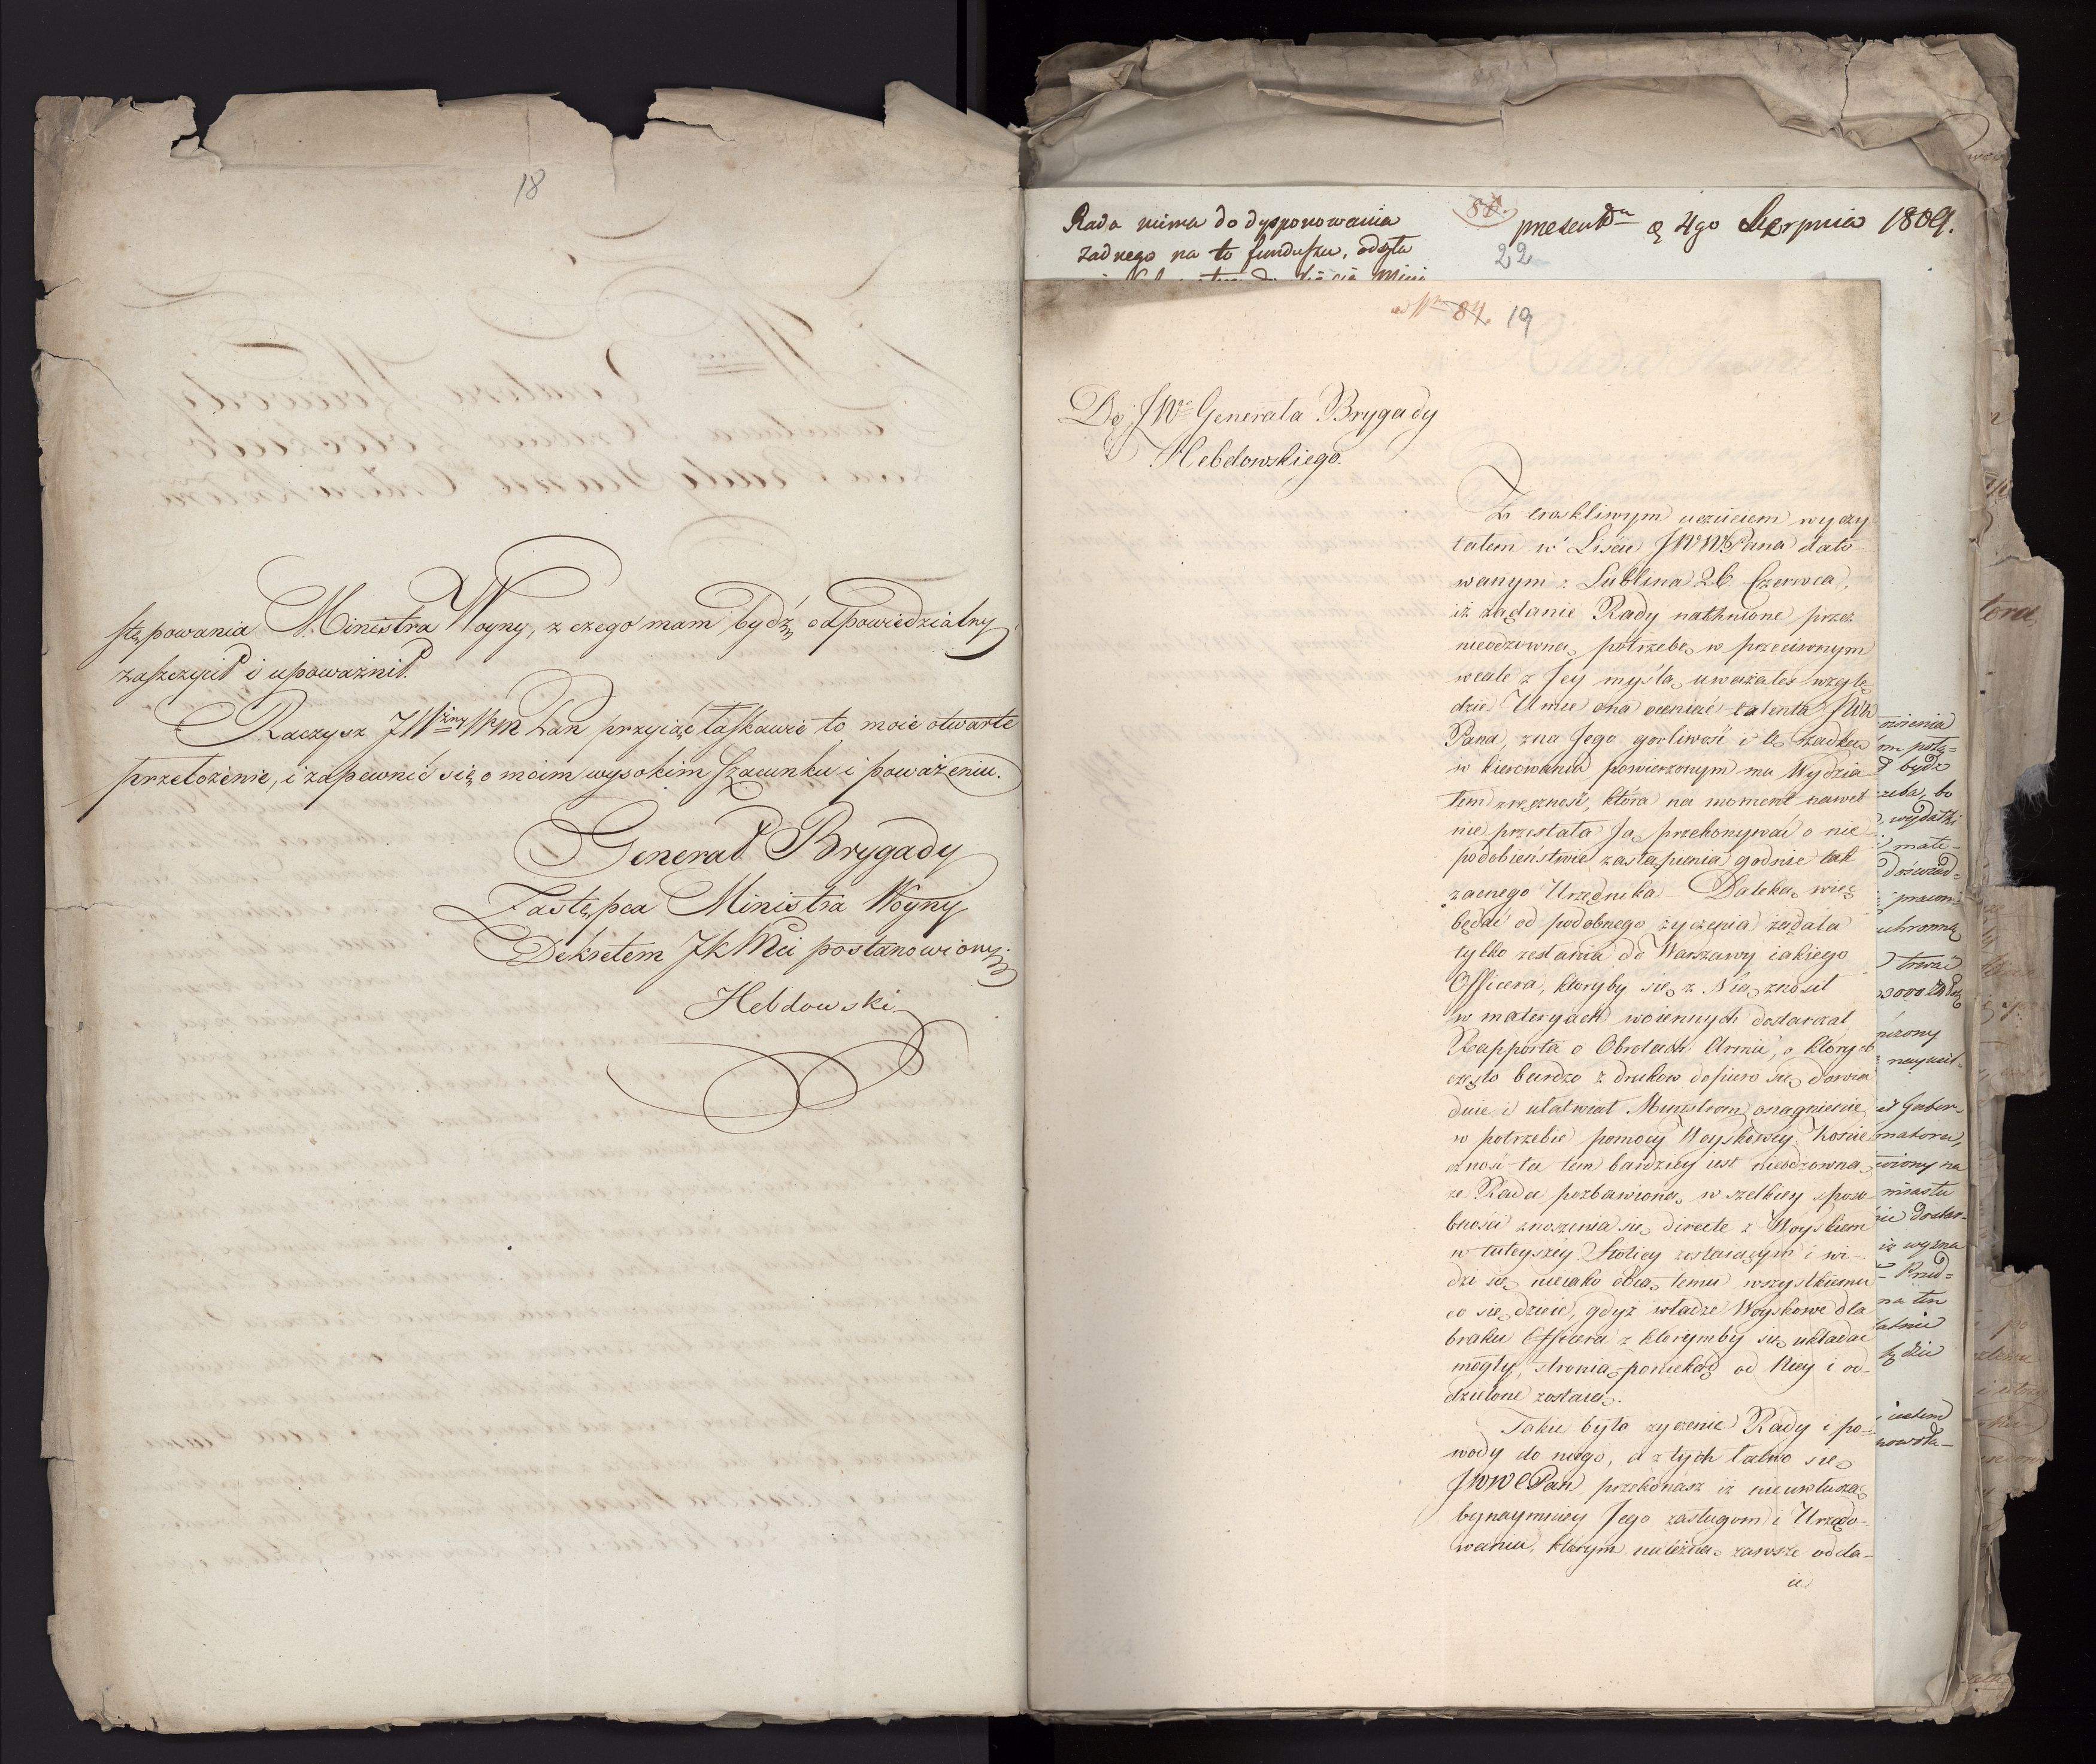 18
stępowania Ministra Woyny, z czego mam bydź odpowiedzialny,
zaszczycił i upoważnił.
Raczysz JW Pan przyiąć łaskawie to moie otwarte
przełożenie, i zapewnić się o moim wysokim szacunku i poważeniu.
Generał Brygady
Zastępca Ministra Woyny
Dekretem JKMci postanowiony
Hebdowski
Rada nima do dysponowania
żadnego na to funduszu, odsyła
22
d 4go Sierpnia 1809.
ad Nr 84. 19
Do JWo Generała Brygady
Hebdowskiego.
Z troskliwym uczuciem wyczy
tałem w Liście JWWPana dato
wanym z Lublina 26. Czerwca,
iż żądanie Rady nathnione przez
nieodzowną potrzebę w przeciwnym
wcale z Jey myślą uważałeś wzglę
dzie. Umie ona oceniać talenta JWW
Pana, zna Jego gorliwość i tę rzadką
w kierowaniu powierzonym mu Wydzia
łem zręczność, która na moment nawet
nie przestała Ją przekonywać o nie
podobieństwie zastąpienia godnie tak
zacnego Urzędnika. Daleką więc
będąc od podobnego życzenia żądała
tylko zesłania do Warszawy iakiego
Officera, któryby się z Nią znosił
w materyach woiennych dostarczał
Rapporta o Obrotach Armii, o których
często bardzo z druków dopiero się dowia
duie i ułatwiał Ministrom osiągnienie
w potrzebie pomocy Woyskowey. Koniec
zność ta tem bardziey iest nieodzowna,
że Rada pozbawiona wszelkiey sposo
bności znoszenia się directe z Woyskiem
w tuteyszéy Stolicy zostaiącym i wi-
dzi się nieiako obcą temu wszystkiemu
co się dzieie, gdyż władze Woyskowe dla
braku Officera z którymby się układać
mogły, stronią poniekąd od Niey i od-
dzielone zostaią.
Takie było życzenie Rady i po-
wody do niego, a z tych łatwo się
JWWPan przekonasz iż nie uwłuszą
bynaymniey Jego zasługom i Urzędo-
waniu, którym należną zawsze odda-
ie
bydź
zeba, bo
wydatki
mate-
trwać
miasta
iż wyzna
na ten